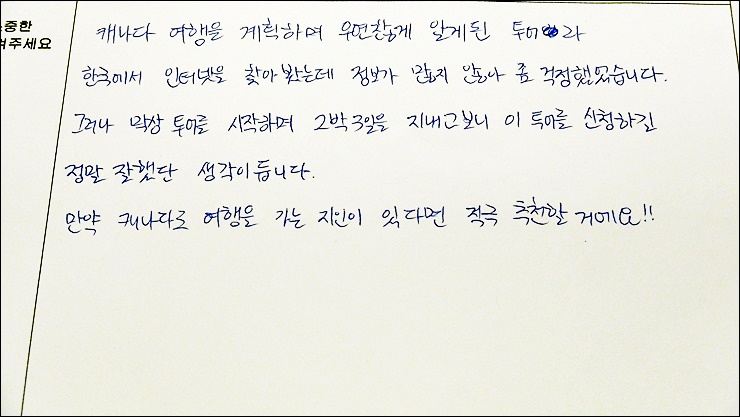 소중한
려주세요
캐나다 여행을 계획하며 우연찮게 알게된 투어라
한국에서 인터넷을 찾아봤는데 정보가 많지 않아 좀 걱정했었습니다.
그러나 막상 투어를 시작하며 2박3일을 지내고보니 이 투어를 신청하길
정말 잘했단 생각이듭니다.
만약 캐나다로 여행을 가는 지인이 있다면 적극 추천할 거에요!!